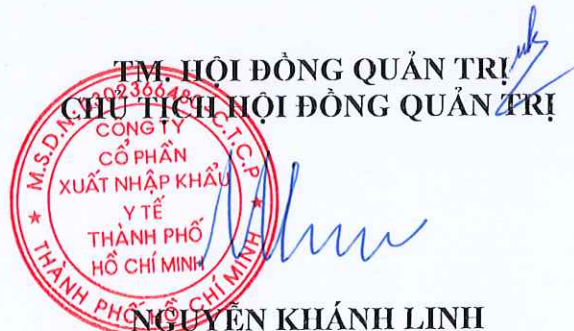 TM. HỘI ĐỒNG QUẢN TRỊ
CHỦ TỊCH HỘI ĐỒNG QUẢN TRỊ
M.S.D.N: 0302366480 C.T.C.P
CÔNG TY
CỔ PHẦN
XUẤT NHẬP KHẨU
Y TẾ
THÀNH PHỐ
HỒ CHÍ MINH
THÀNH PHỐ HỒ CHÍ MINH
NGUYỄN KHÁNH LINH